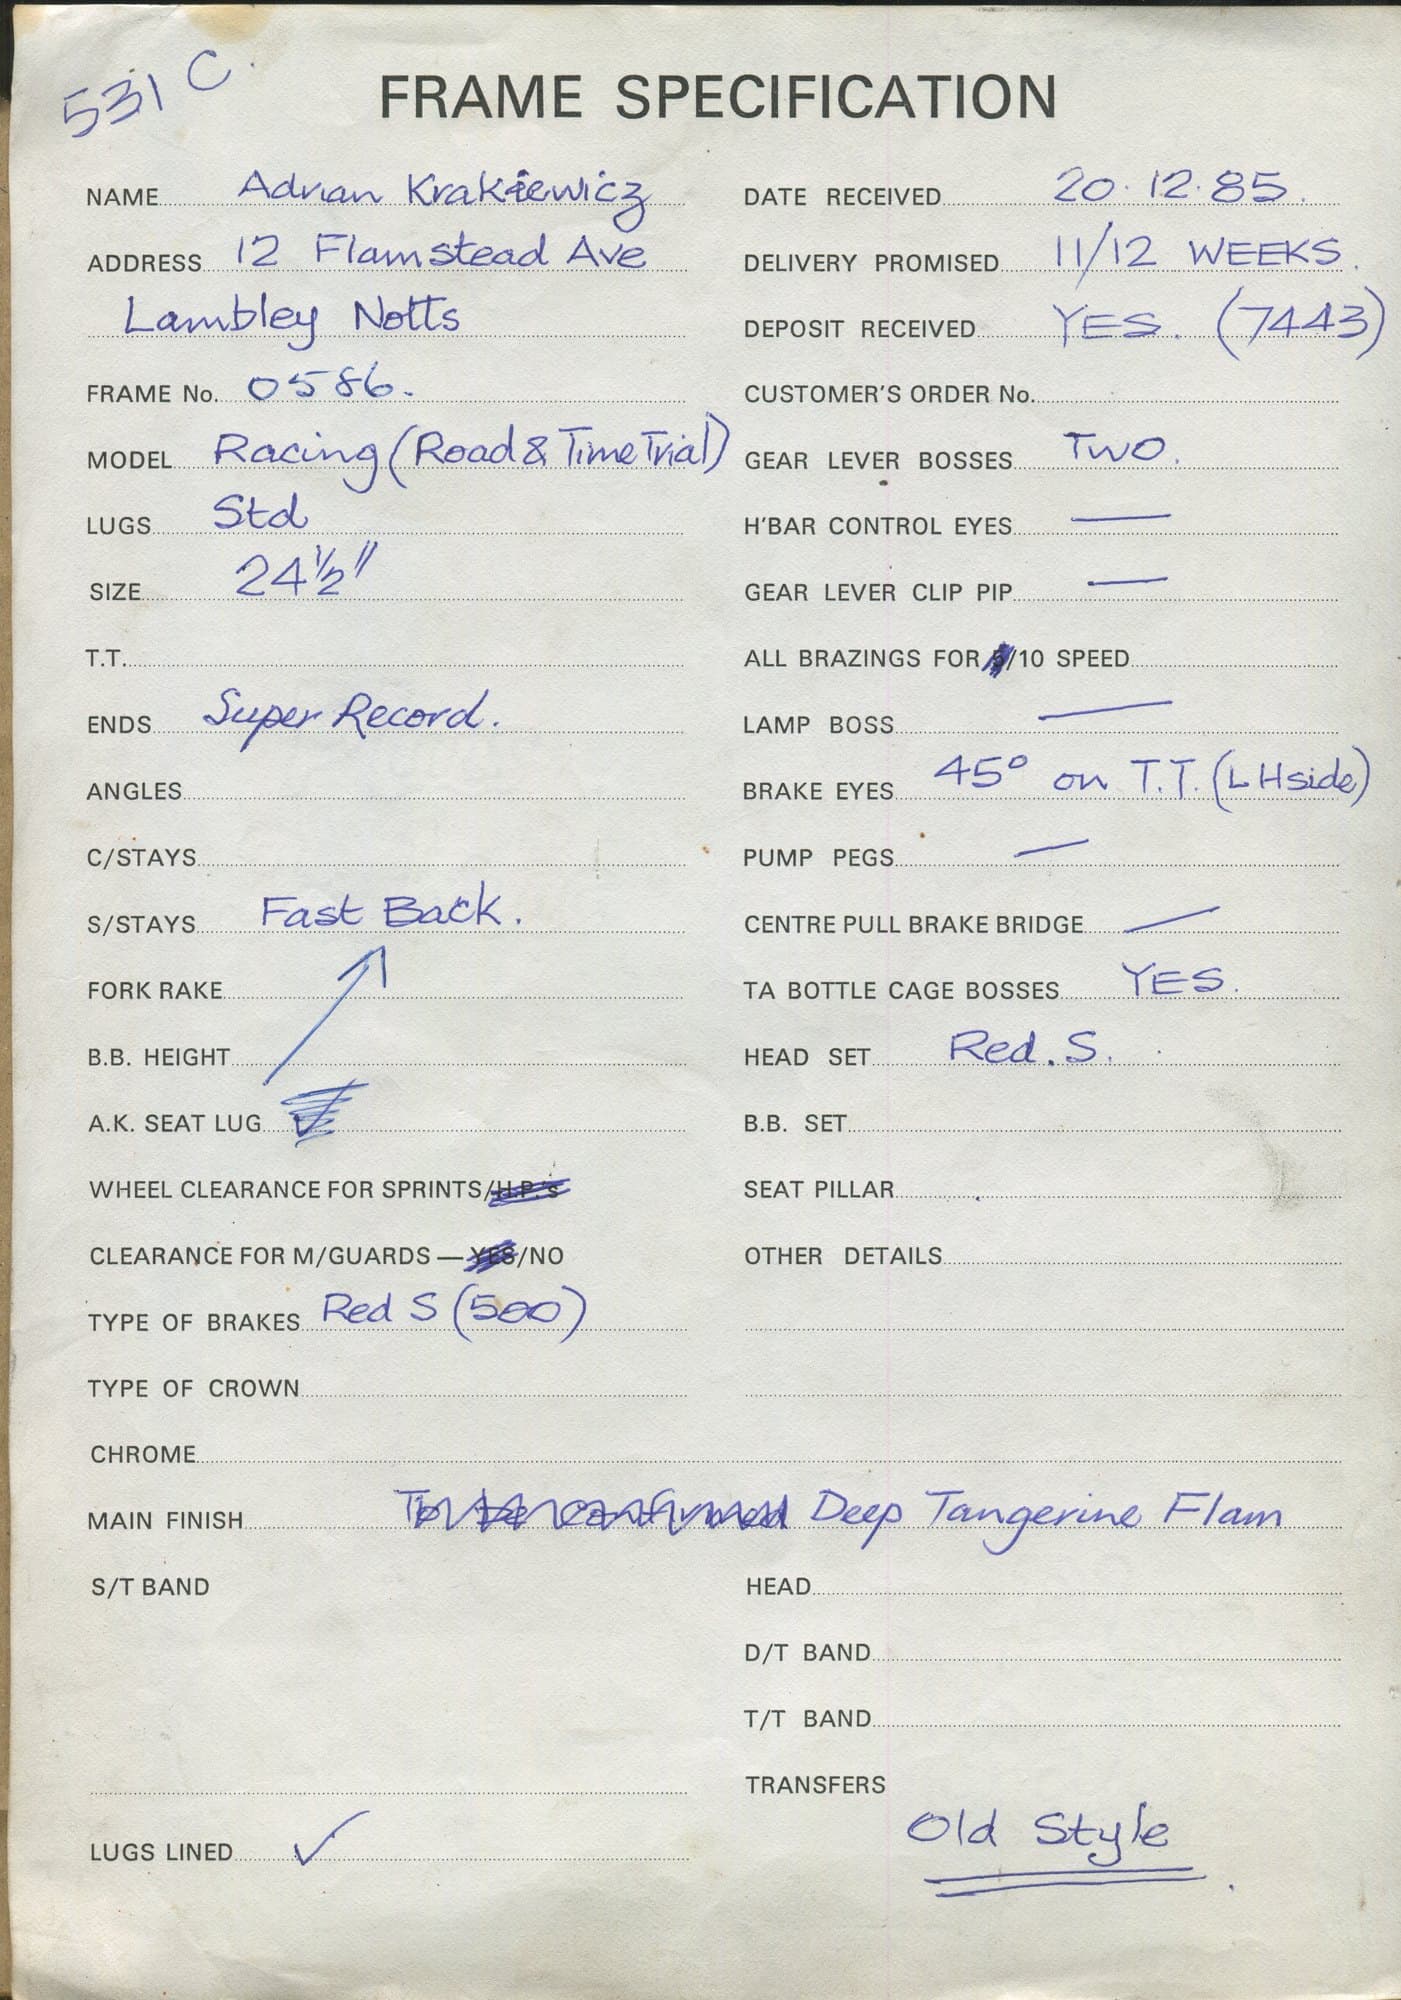 531 C.
FRAME SPECIFICATION
NAME Adrian Krakiewicz
ADDRESS 12 Flamstead Ave
Lambley Notts
FRAME No. 0586.
MODEL Racing (Road & Time Trial)
LUGS Std
SIZE 24 1/2"
T.T.
ENDS Super Record.
ANGLES
C/STAYS
S/STAYS Fast Back.
FORK RAKE
B.B. HEIGHT
A.K. SEAT LUG
WHEEL CLEARANCE FOR SPRINTS/H.P.'s
CLEARANCE FOR M/GUARDS — YES/NO
TYPE OF BRAKES Red S (500)
TYPE OF CROWN
DATE RECEIVED 20.12.85.
DELIVERY PROMISED 11/12 WEEKS.
DEPOSIT RECEIVED YES. (7443)
CUSTOMER'S ORDER No.
GEAR LEVER BOSSES TWO.
H'BAR CONTROL EYES —
GEAR LEVER CLIP PIP —
ALL BRAZINGS FOR 5/10 SPEED
LAMP BOSS —
BRAKE EYES 45° on T.T. (L H side)
PUMP PEGS —
CENTRE PULL BRAKE BRIDGE —
TA BOTTLE CAGE BOSSES YES.
HEAD SET Red. S.
B.B. SET
SEAT PILLAR
OTHER DETAILS
CHROME
MAIN FINISH To be confirmed Deep Tangerine Flam
S/T BAND
LUGS LINED ✓
HEAD
D/T BAND
T/T BAND
TRANSFERS
Old Style